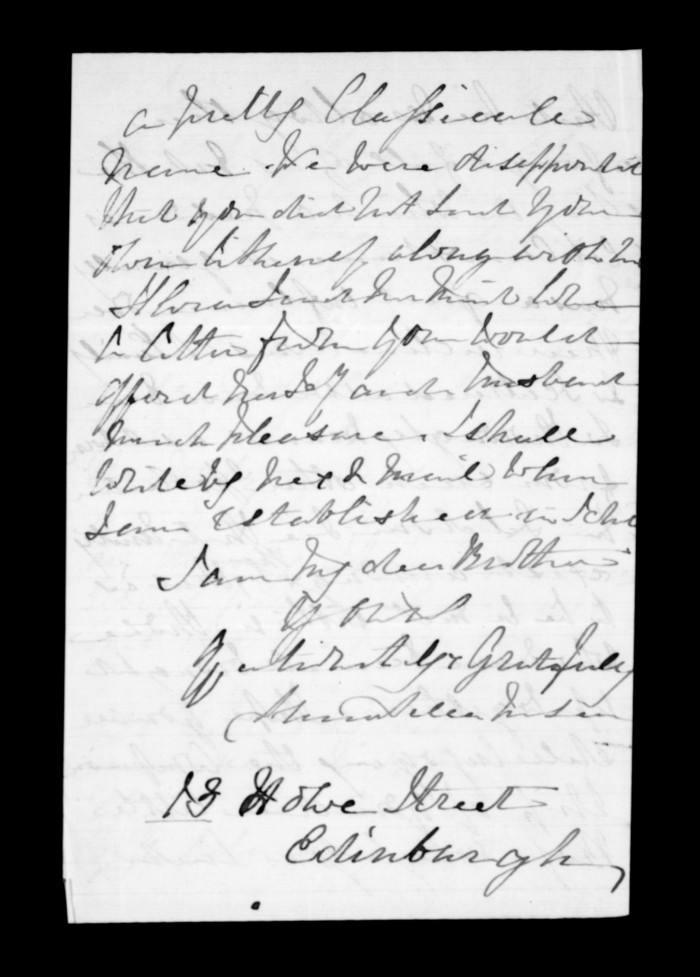 a pretty Classicale
name. We were disappointed
that you did not send your
own likeness along with the
Flora sends her kind love
a letter from you would
afford herself and husband
much pleasure. I shall
write by next mail when
I am established in
I am My dear Brother
Yours
Affectionately & Gratefully
13 Howe Street
Edinburgh